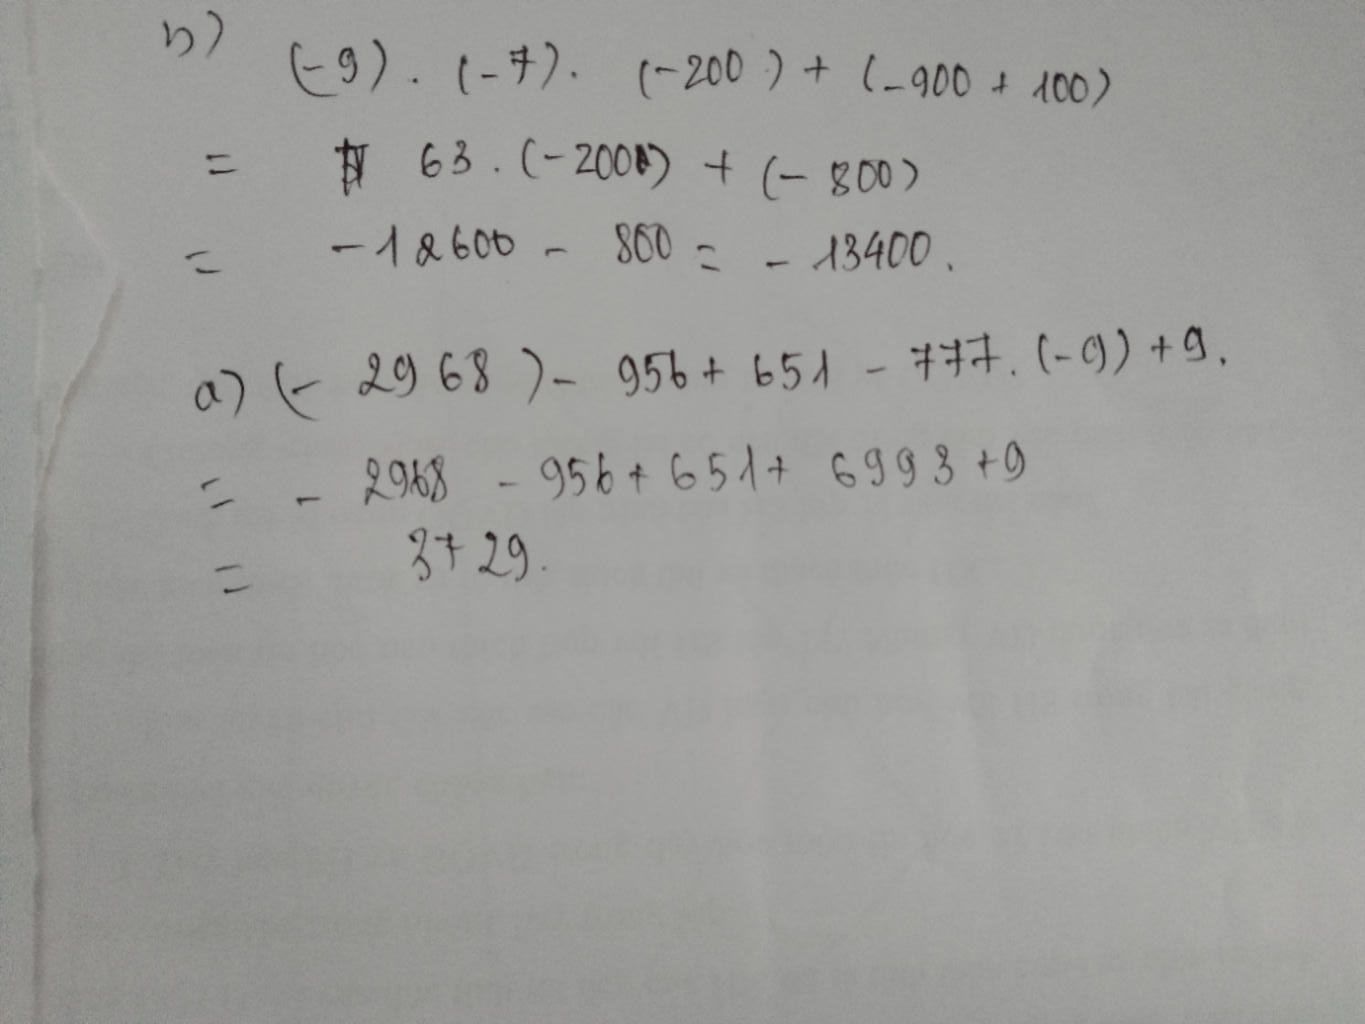 b) (-9) . (-7) . (-200) + (-900 + 100)
= 63 . (-200) + (-800)
= -12600 - 800 = -13400.
a) (-2968) - 956 + 651 - 777 . (-9) + 9.
= -2968 - 956 + 651 + 6993 + 9
= 3729.